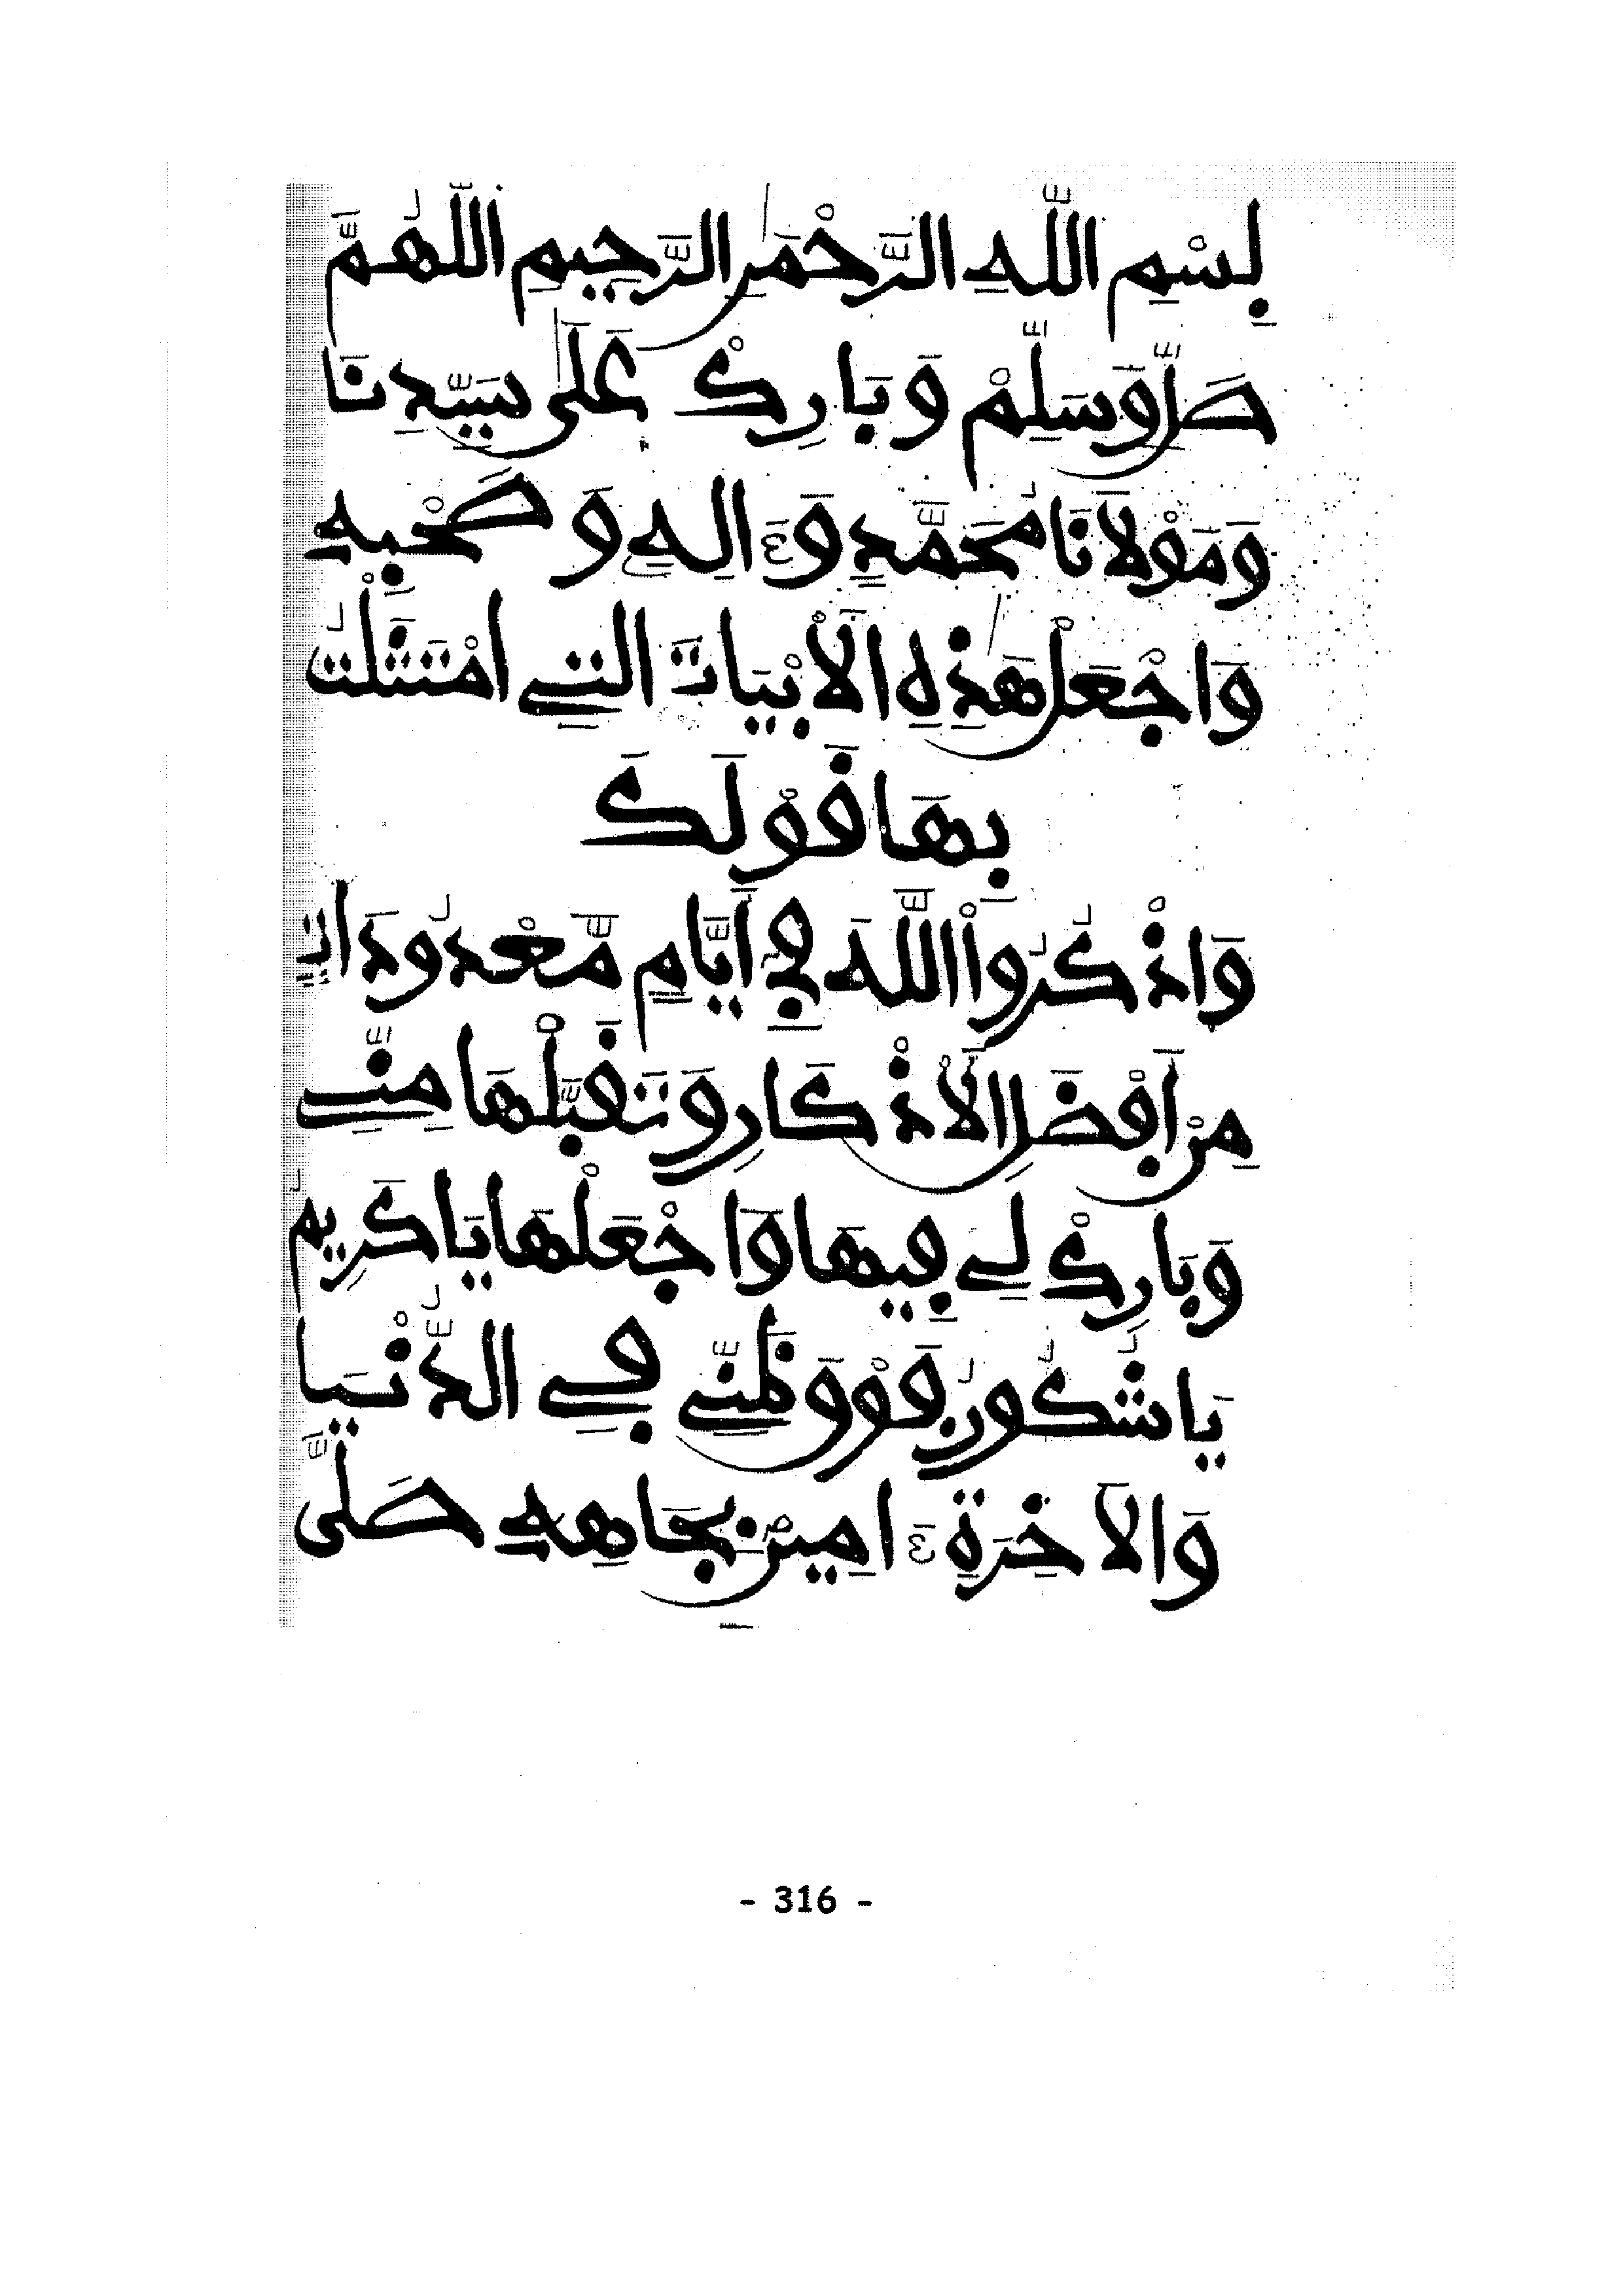 بِسْمِ اللَّهِ الرَّحْمَنِ الرَّحِيمِ اللَّهُمَّ
صَلِّ وَسَلِّمْ وَبَارِكْ عَلَى سَيِّدِنَا
وَمَوْلَانَا مُحَمَّدٍ وَءَالِهِ وَصَحْبِهِ
وَاجْعَلْ هَذِهِ الْأَبْيَاتَ التِي امْتَثَلْتُ
بِهَا قَوْلَكَ
وَاذْكُرُواْ اللَّهَ فِي أَيَّامٍ مَّعْدُودَاتٍ
مِنْ أَفْضَلِ الْأَذْكَارِ وَتَقَبَّلْهَا مِنِّي
وَبَارِكْ لِي فِيهَا وَاجْعَلْهَا يَا كَرِيمُ
يَا شَكُورُ فَوْقَ ظَنِّي فِي الدُّنْيَا
وَالْآخِرَةِ ءَامِينْ بِجَاهِهِ صَلَّى
- 316 -